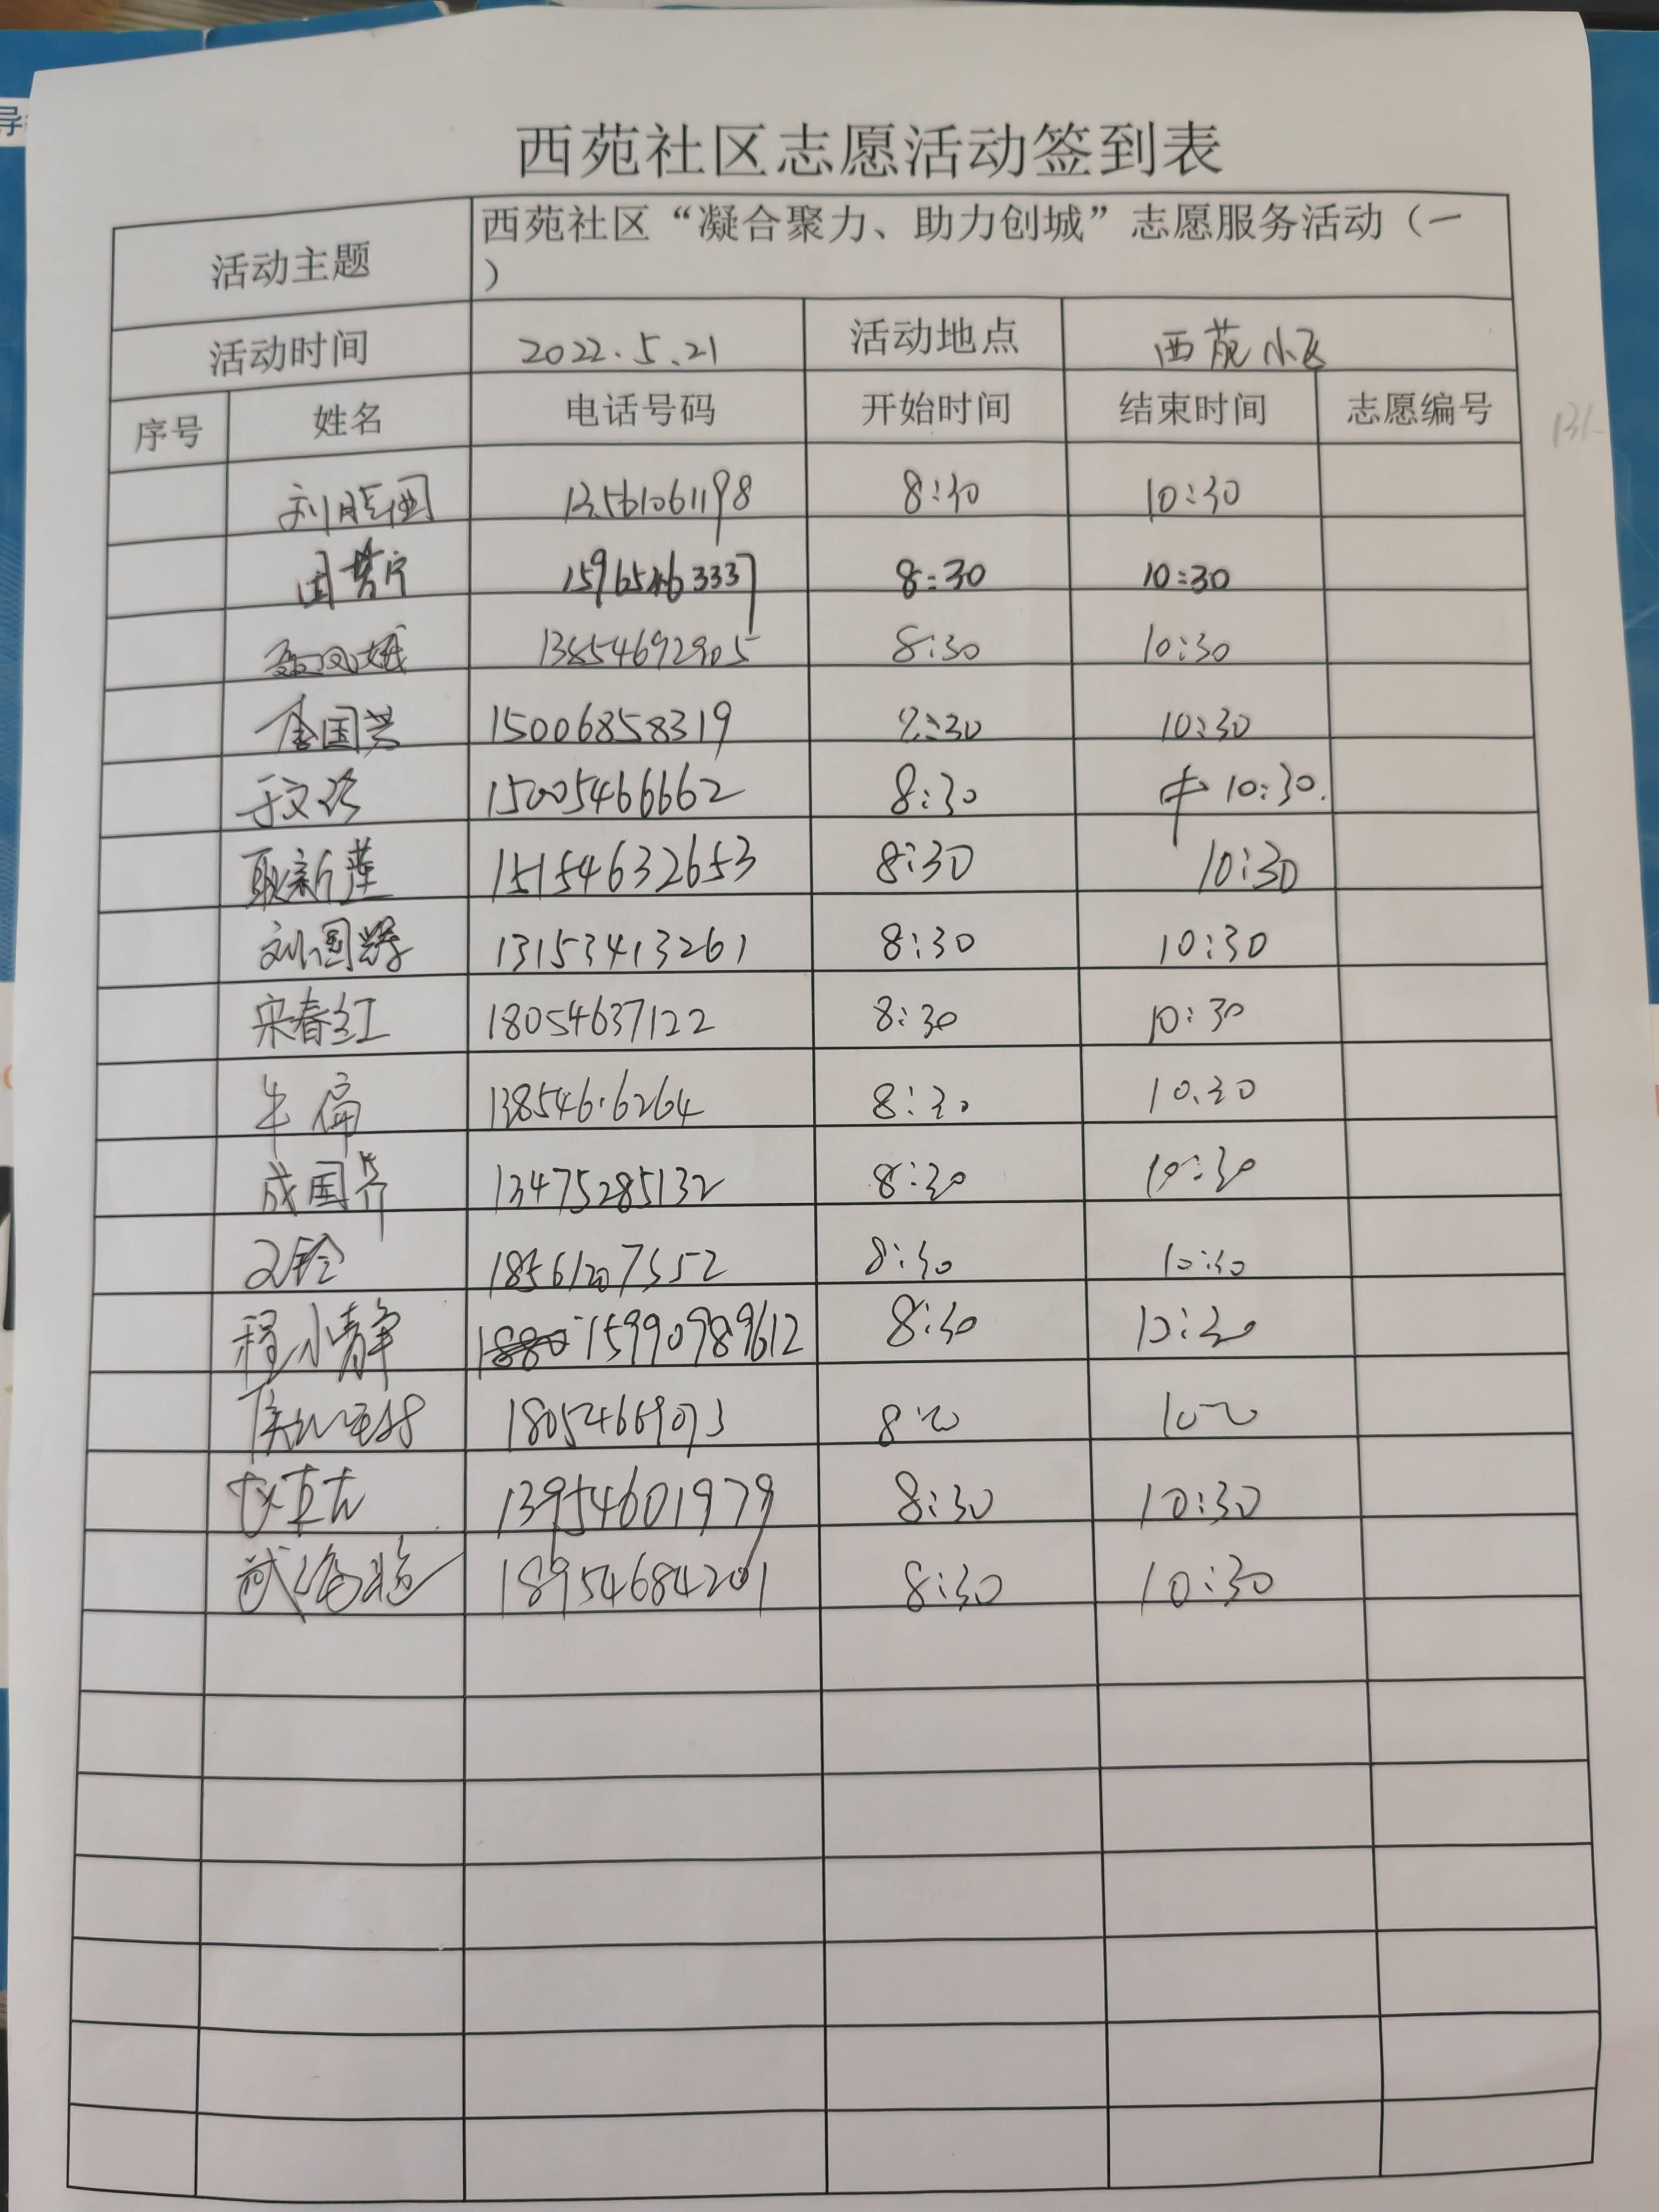 西苑社区志愿活动签到表
活动主题 西苑社区“凝合聚力、助力创城”志愿服务活动（一
）
活动时间 2022.5.21 活动地点 西苑小区
序号 姓名 电话号码 开始时间 结束时间 志愿编号
13561061198 8:30 10:30
15965463337 8:30 10:30
13854692905 8:30 10:30
15006858319 8:30 10:30
15005466662 8:30 10:30.
耿新莲 15154632653 8:30 10:30
刘国辉 13153413261 8:30 10:30
宋春红 18054637122 8:30 10:30
8:30 10.30
成国芹 13475285132 8:30 10:30
8:30 10:30
程小静 15990989612 8:30 10:30
13954601979 8:30 10:30
18954684201 8:30 10:30